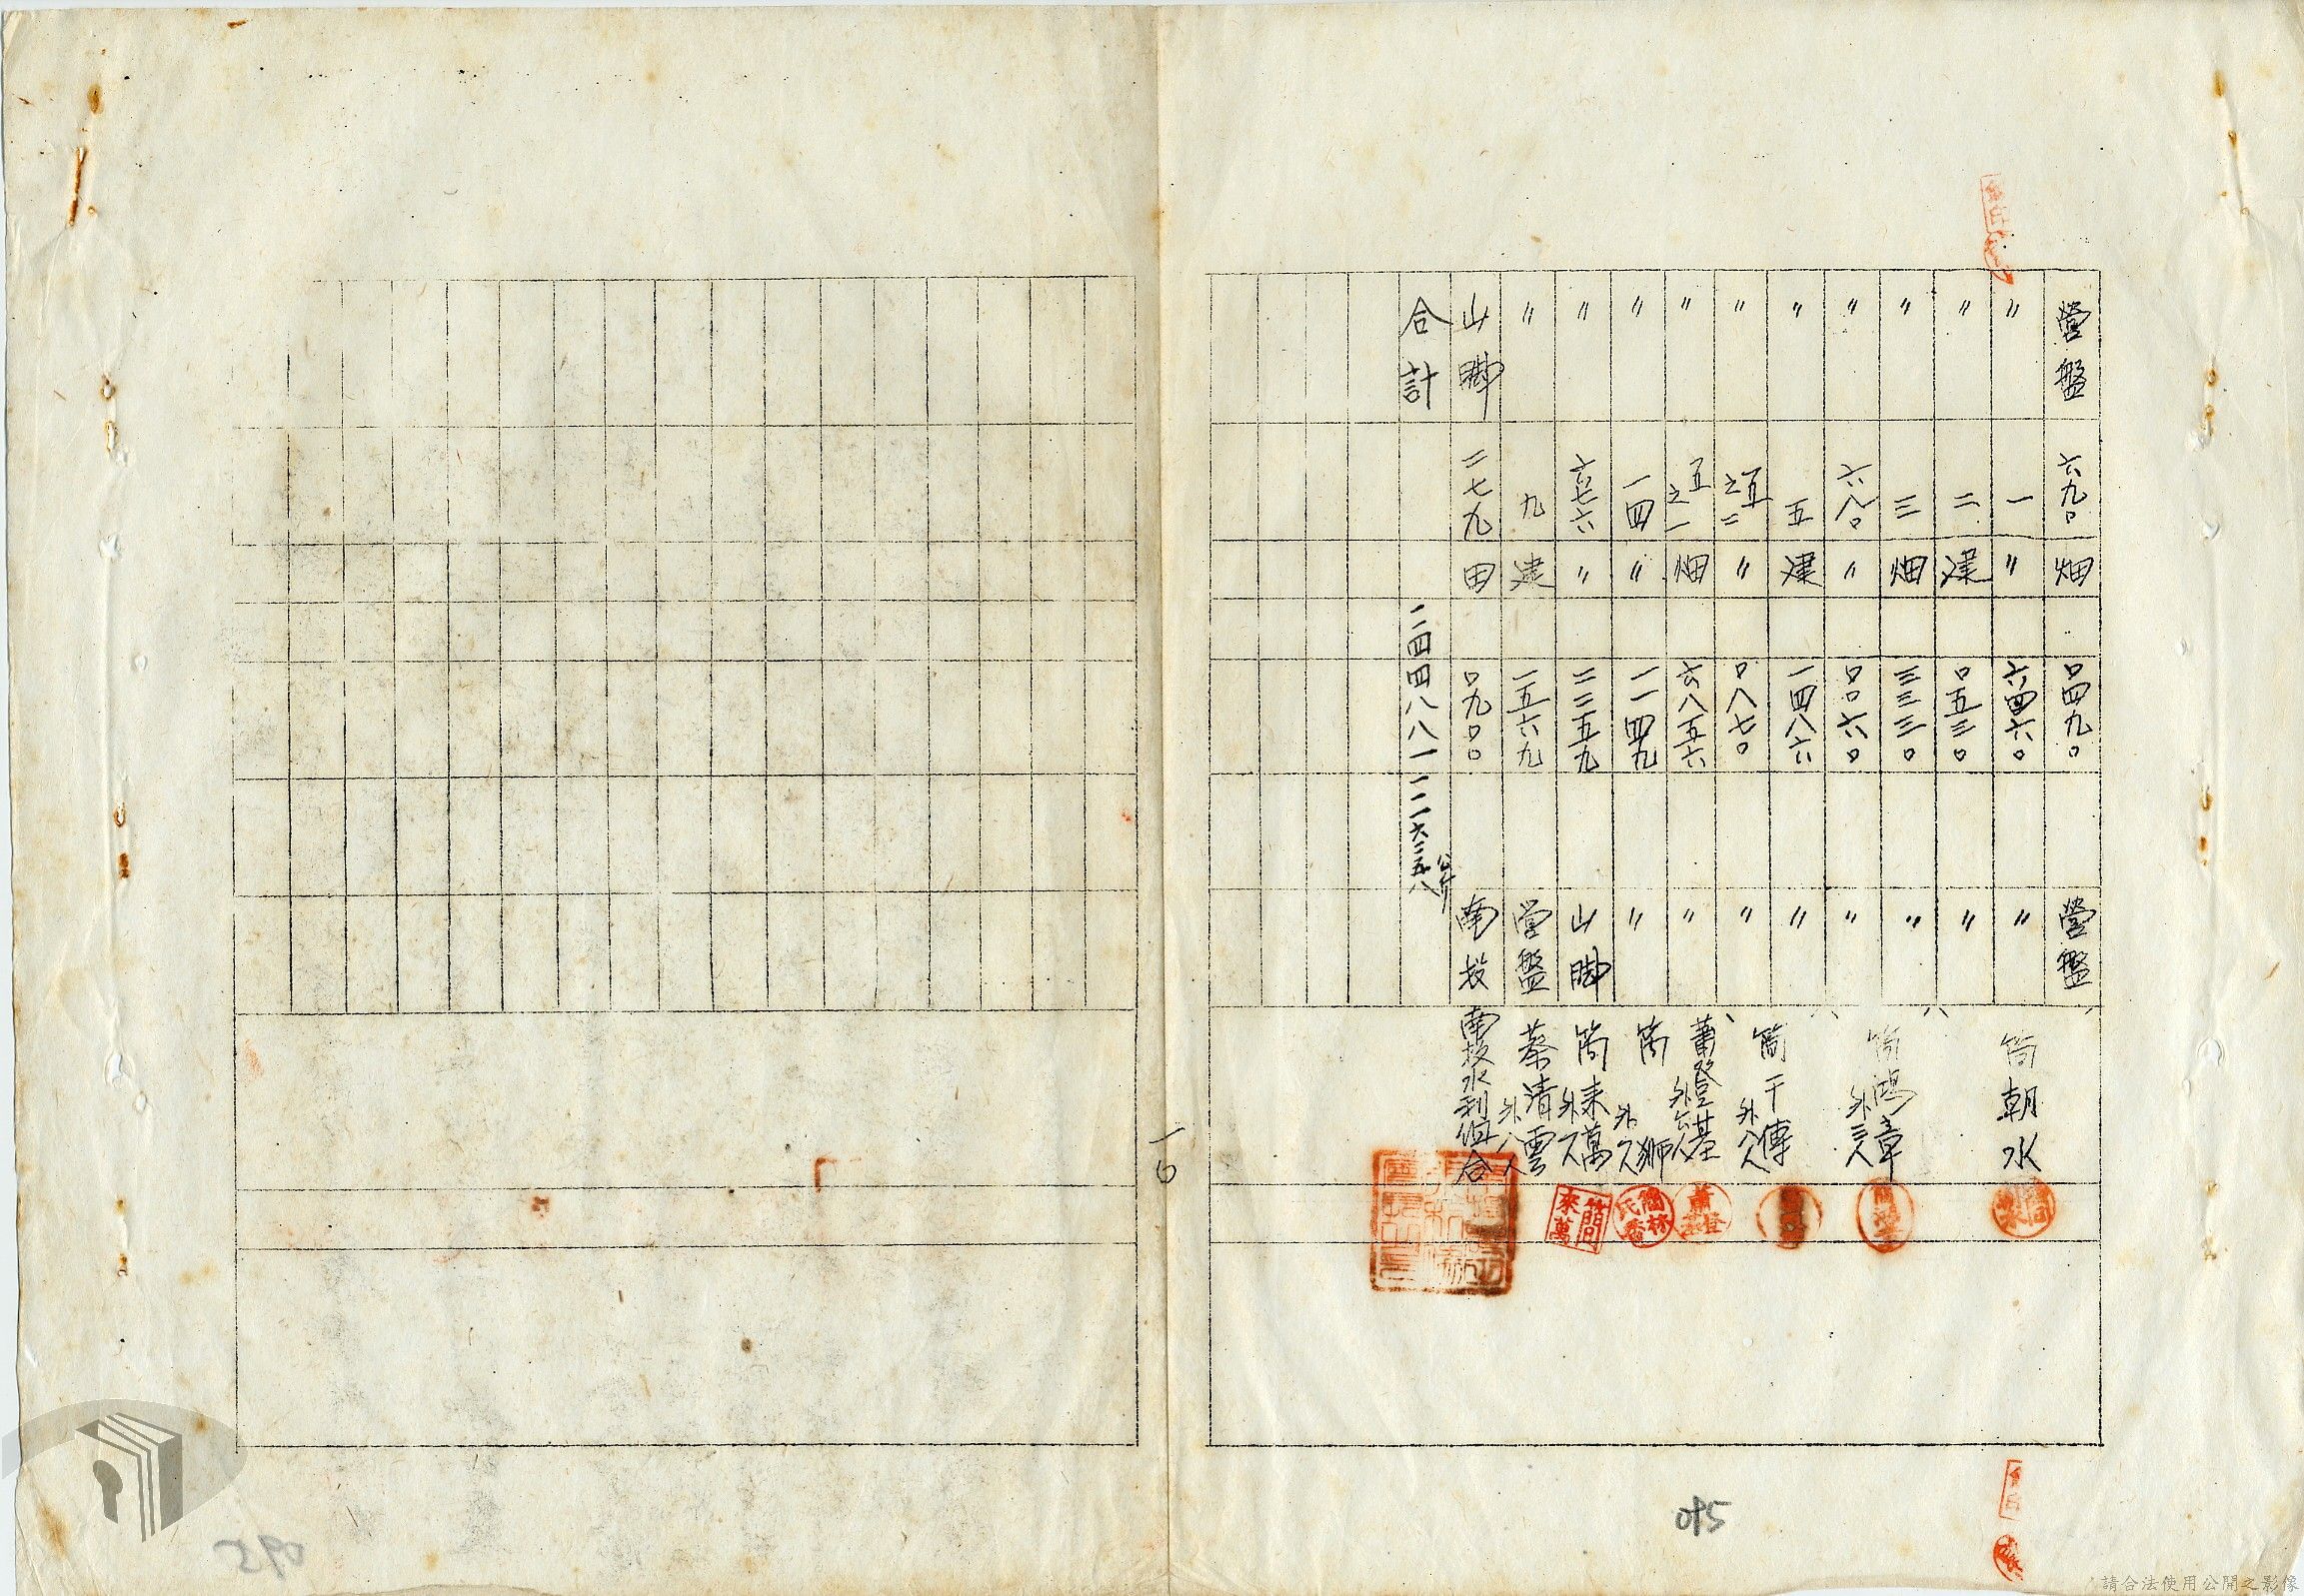 營盤 六九〇 畑 〇四九〇 營盤 簡朝水
〃 一 〃 六四六〇 〃
〃 二 建 〇五三〇 〃
〃 三 畑 三三三〇 〃 簡鴻章 外三人
〃 六八〇 〃 〇〇六〇 〃
〃 五 建 一四八六 〃
〃 五之二 〃 〇八七〇 〃 簡干傳 外八人
〃 五之一 畑 六八五六 〃 蕭登基 外六人
〃 一四 〃 一一四九 〃 簡獅 外一人
〃 六七六 〃 二二五九 山腳 簡來萬 外一人
〃 九 建 一五六九 營盤 蔡清雲 外八人
山腳 二七九 田 〇九〇〇 南投 南投水利組合
合計
公斤
簡來萬
一〇
095
請合法使用公開之影像